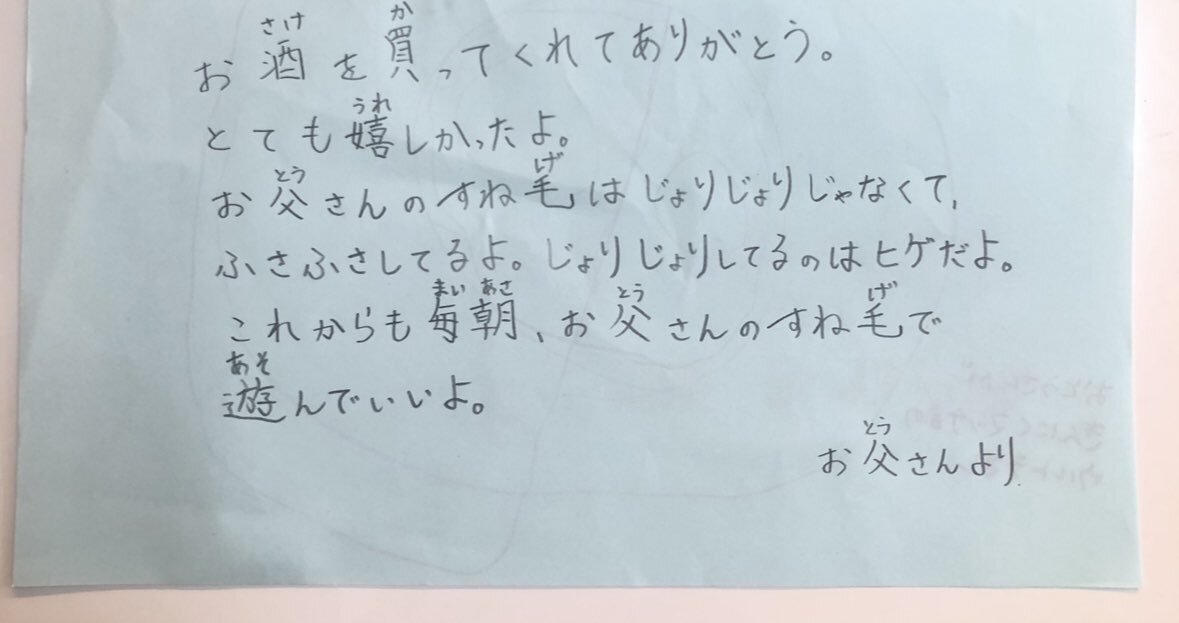 お酒を買ってくれてありがとう。
とても嬉しかったよ。
お父さんのすね毛はじょりじょりじゃなくて、
ふさふさしてるよ。じょりじょりしてるのはヒゲだよ。
これからも毎朝、お父さんのすね毛で
遊んでいいよ。
お父さんより